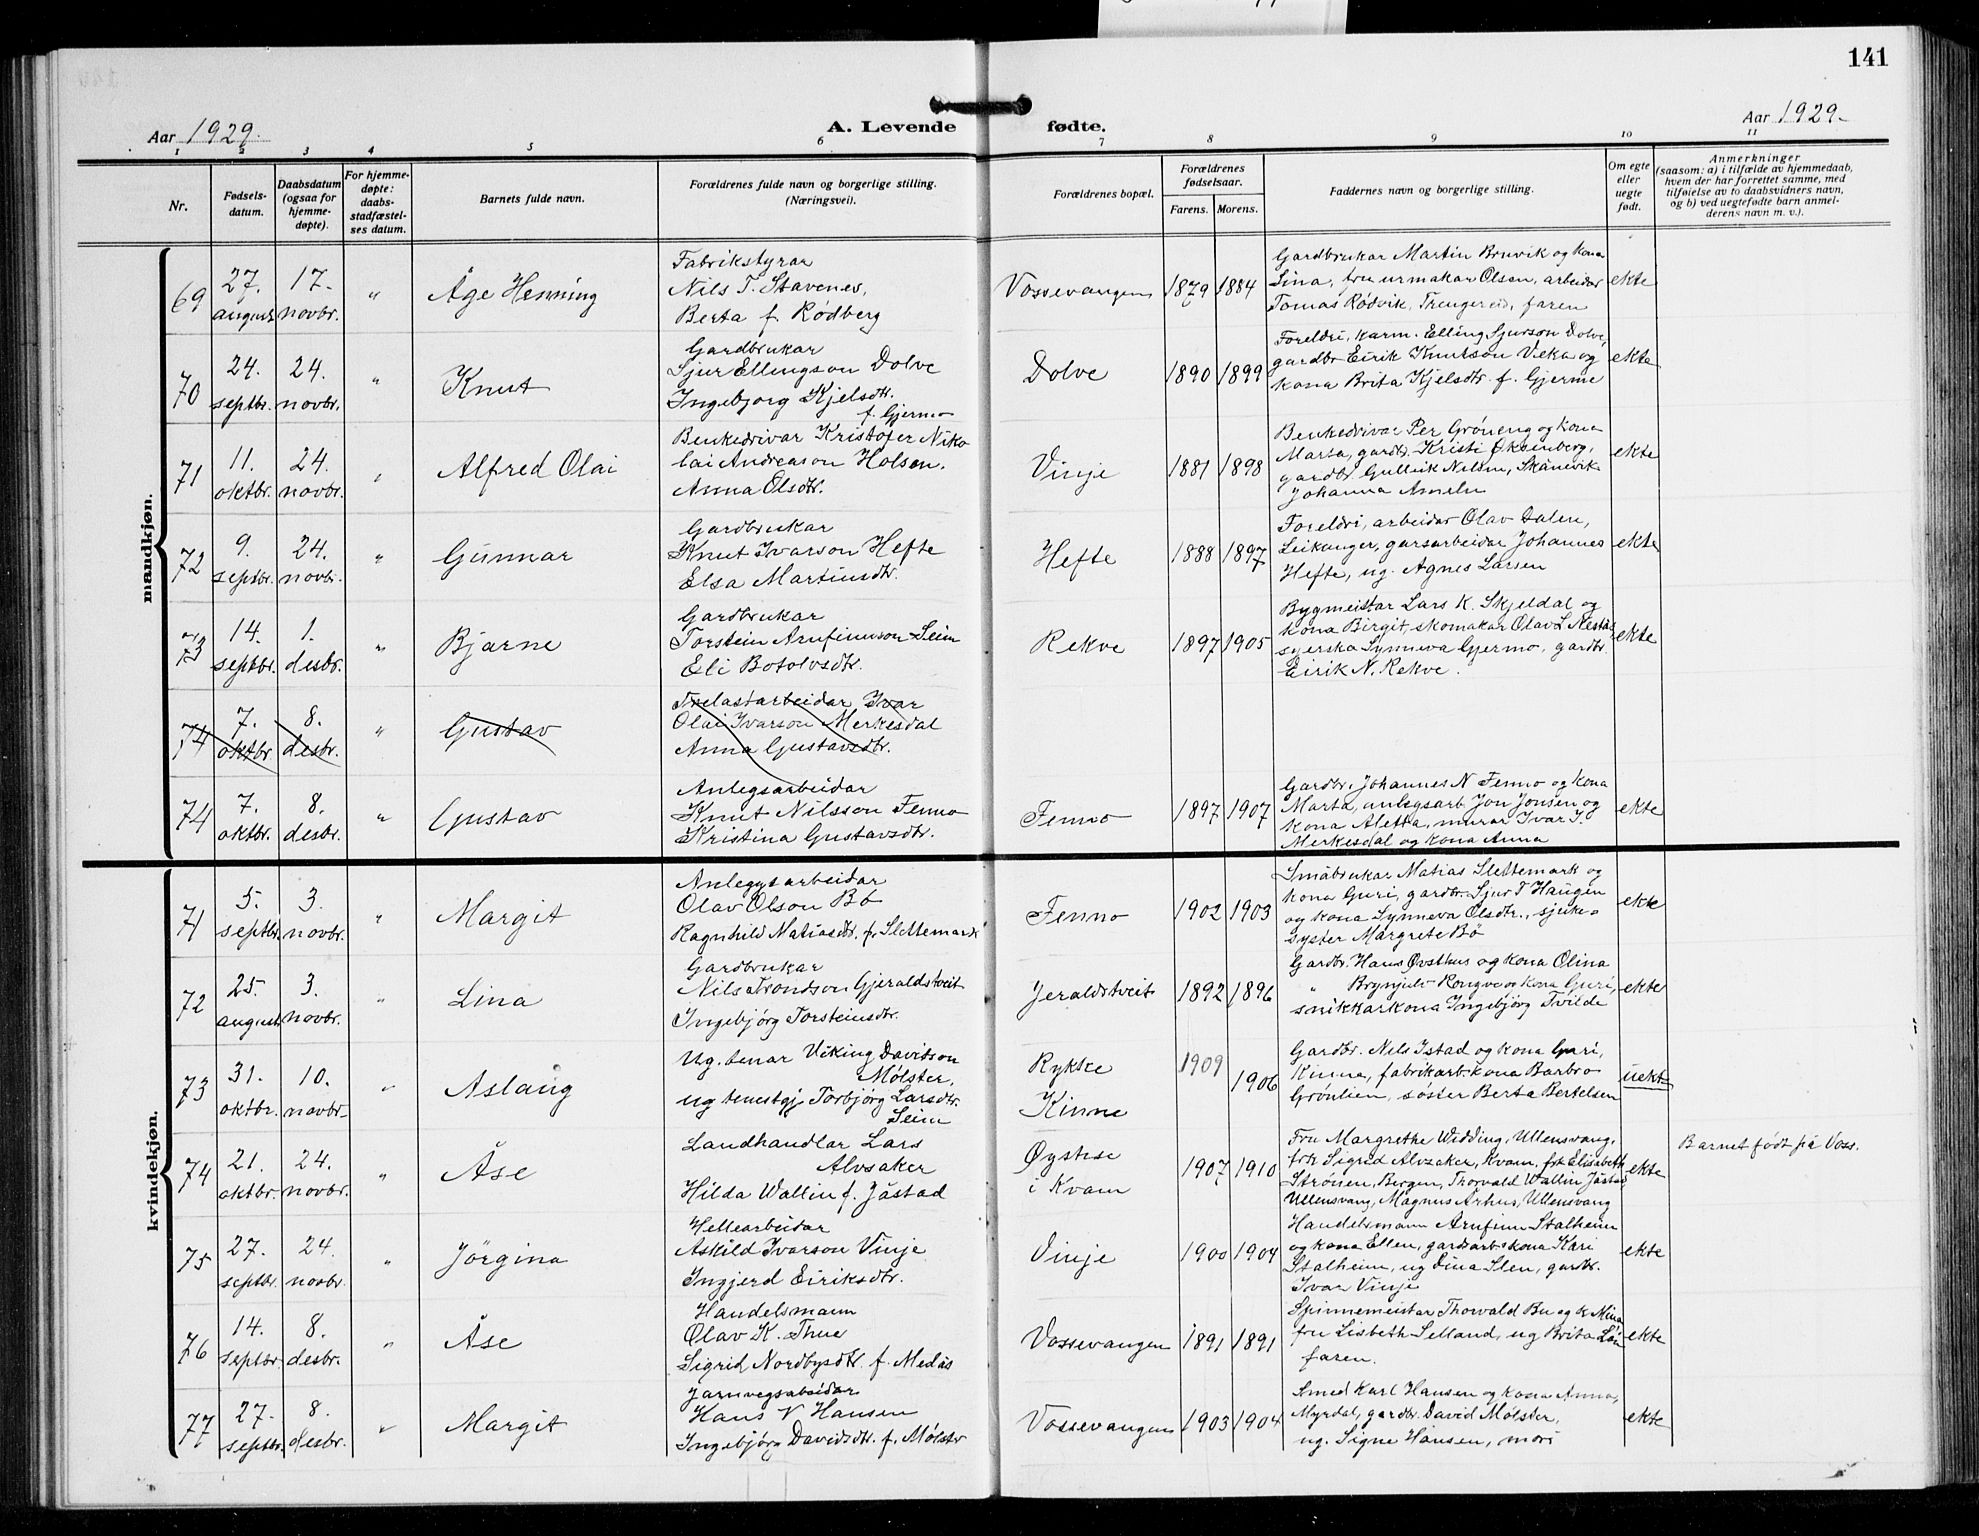 141
Aar 1929.
A. Levende fødte.
Aar 1929.
1 2 3 4 5 6 7 8 9 10 11
Nr.
Fødsels-
datum.
Daabsdatum
(ogsaa for
hjemme-
døpte).
For hjemme-
døpte:
daabs-
stadfæstel-
ses datum.
Barnets fulde navn.
Forældrenes fulde navn og borgerlige stilling.
(Næringsvei).
Forældrenes bopæl.
Forældrenes
fødselsaar.
Farens. Morens.
Faddernes navn og borgerlige stilling.
Om egte
eller
uegte
født.
Anmerkninger
(saasom: a) i tilfælde av hjemmedaab,
hvem der har forrettet samme, med
tilføielse av to daabsvidners navn,
og b) ved uegtefødte barn anmel-
derens navn m. v.).
mandkjøn.
69
27.
august
17.
novbr.
"
Åge Henning
Fabrikstyrar
Nils T. Stavenes,
Berta f. Rødberg
Vossevangen
1879 1884
Gardbrukar Martin Bruvik og kona
Lina, fru urmakar Olsen, arbeidar
Tomas Rødvik, Trengereid, faren
ekte
70
24.
septbr.
24.
novbr.
"
Knut
Gardbrukar
Sjur Ellingson Dolve
Ingebjorg Kjelsdtr.
f. Gjermo
Dolve
1890 1899
Foreldri, karm. Elling Sjurson Dolve,
gardbr. Eirik Knutson Veka og
kona Brita Kjelsdtr. f. Gjerme
ekte
71
11.
oktbr.
24.
novbr.
"
Alfred Olai
Benkedrivar Kristofer Niko
lai Andreason Holsen.
Anna Olsdtr.
Vinje
1881 1898
Benkedrivar Per Grøneng og kona
Marta, gardbr. Kristi Øksenberg,
gardbr. Gulleik Nelson, Skånevik
Johanna
ekte
72
9.
septbr.
24.
novbr.
"
Gunnar
Gardbrukar
Knut Ivarson Hefte
Elsa Martinsdtr.
Hefte
1888 1897
Foreldri, arbeidar Olav Dalen,
Leikanger, garsarbeidar Johannes
Hefte, ug. Agnes Larsen
ekte
73
14.
septbr.
1.
desbr.
"
Bjarne
Gardbrukar
Torstein Arnfinnson Seim
Eli Botolvsdtr.
Rekve
1897 1905
Bygmeistar Lars K. Skjeldal og
kona Birgit, skomakar Olav L. Nestås,
syerska Synneva Gjermo, gardbr.
Eirik N. Rekve.
ekte
74
7.
oktbr.
8.
desbr.
"
Gustav
Trelastarbeidar Ivar
Olai Ivarson Merkesdal
Anna Gustavsdtr.
74
7.
oktbr.
8.
desbr.
"
Gustav
Anlegsarbeidar
Knut Nilsson Fenno
Kristina Gustavsdtr.
Fenno
1897 1907
Gardbr. Johannes N Fenno og kona
Marta, anlegsarb. Jon Jonsen og
kona Aletta, murar Ivar I.
Merkesdal og kona Anna
ekte
kvindekjøn.
71
5.
septbr.
3.
novbr.
"
Margit
Anleggsarbeidar
Olav Olson Bø
Ragnhild Matiasdtr. f. Slettemark
Fenno
1902 1903
Småbrukar Matias Slettemark og
kona Guri, gardbr. Sjur T Haugen
og kona Synneva Olsdtr., sjuke-
syster Margrete Bø
ekte
72
25.
august
3.
novbr.
"
Lina
Gardbrukar
Nils Trondson Gjeraldstveit
Ingebjörg Torsteinsdtr.
Jeraldstveit
1892 1896
Gardbr. Hans Øvsthus og kona Olina
" Brynjulv Rongve og kona Guri,
snikkarkona Ingebjörg Tvilde
ekte
73
31.
oktbr.
10.
novbr.
"
Aslaug
Ug. tenar Viking Davidson
Mølster,
ug tenestgj Torbjörg Larsdtr.
Seim
Rykke
Kinne
1909
1906
Gardbr. Nils Istad og kona Guri,
Kinne, fabrikarb. kona Barbro
Grønlien, søster Berta Bertelsen
uekt
74
21.
oktbr.
24.
novbr.
"
Åse
Landhandlar Lars
Alvsaker
Hilda Wallin f. Jåstad
Øystese
i Kvam
1907 1910
Fru Margrethe Widding, Ullensvang,
frk Sigrid Alvzaker, Kvam, frk Elisabeth
Strønen, Bergen, Thorvald Wallin Jåstad
Ullensvang, Magnus Århus, Ullensvang
ekte
Barnet født på Voss.
75
27.
septbr.
24.
novbr.
"
Jörgina
Hellearbeidar
Askild Ivarson Vinje
Ingjerd Eiriksdtr.
Vinje
1900 1904
Handelsmann Arnfinn Stalheim
og kona Ellen, gardsarb. kona Kari
Stalheim, ug Dina Slen, gardbr.
Ivar Vinje
ekte
76
14.
septbr.
8.
desbr.
"
Åse
Handelsmann
Olav K. Thue
Sigrid Nordbysdtr. f. Medås
Vossevangen
1891 1891
Spinnemeistar Thorvald Bu og k Mina
fru Lisbeth Selland, ug Brita
faren.
ekte
77
27.
septbr.
8.
desbr.
"
Margit
Jarnvegsarbeidar
Hans V Hansen
Ingebjörg Davidsdtr. f. Mølster
Vossevangen
1903 1904
Smed Karl Hansen og kona Anna,
Myrdal, gardbr. David Mølster,
ug. Signe Hansen, mori
ekte